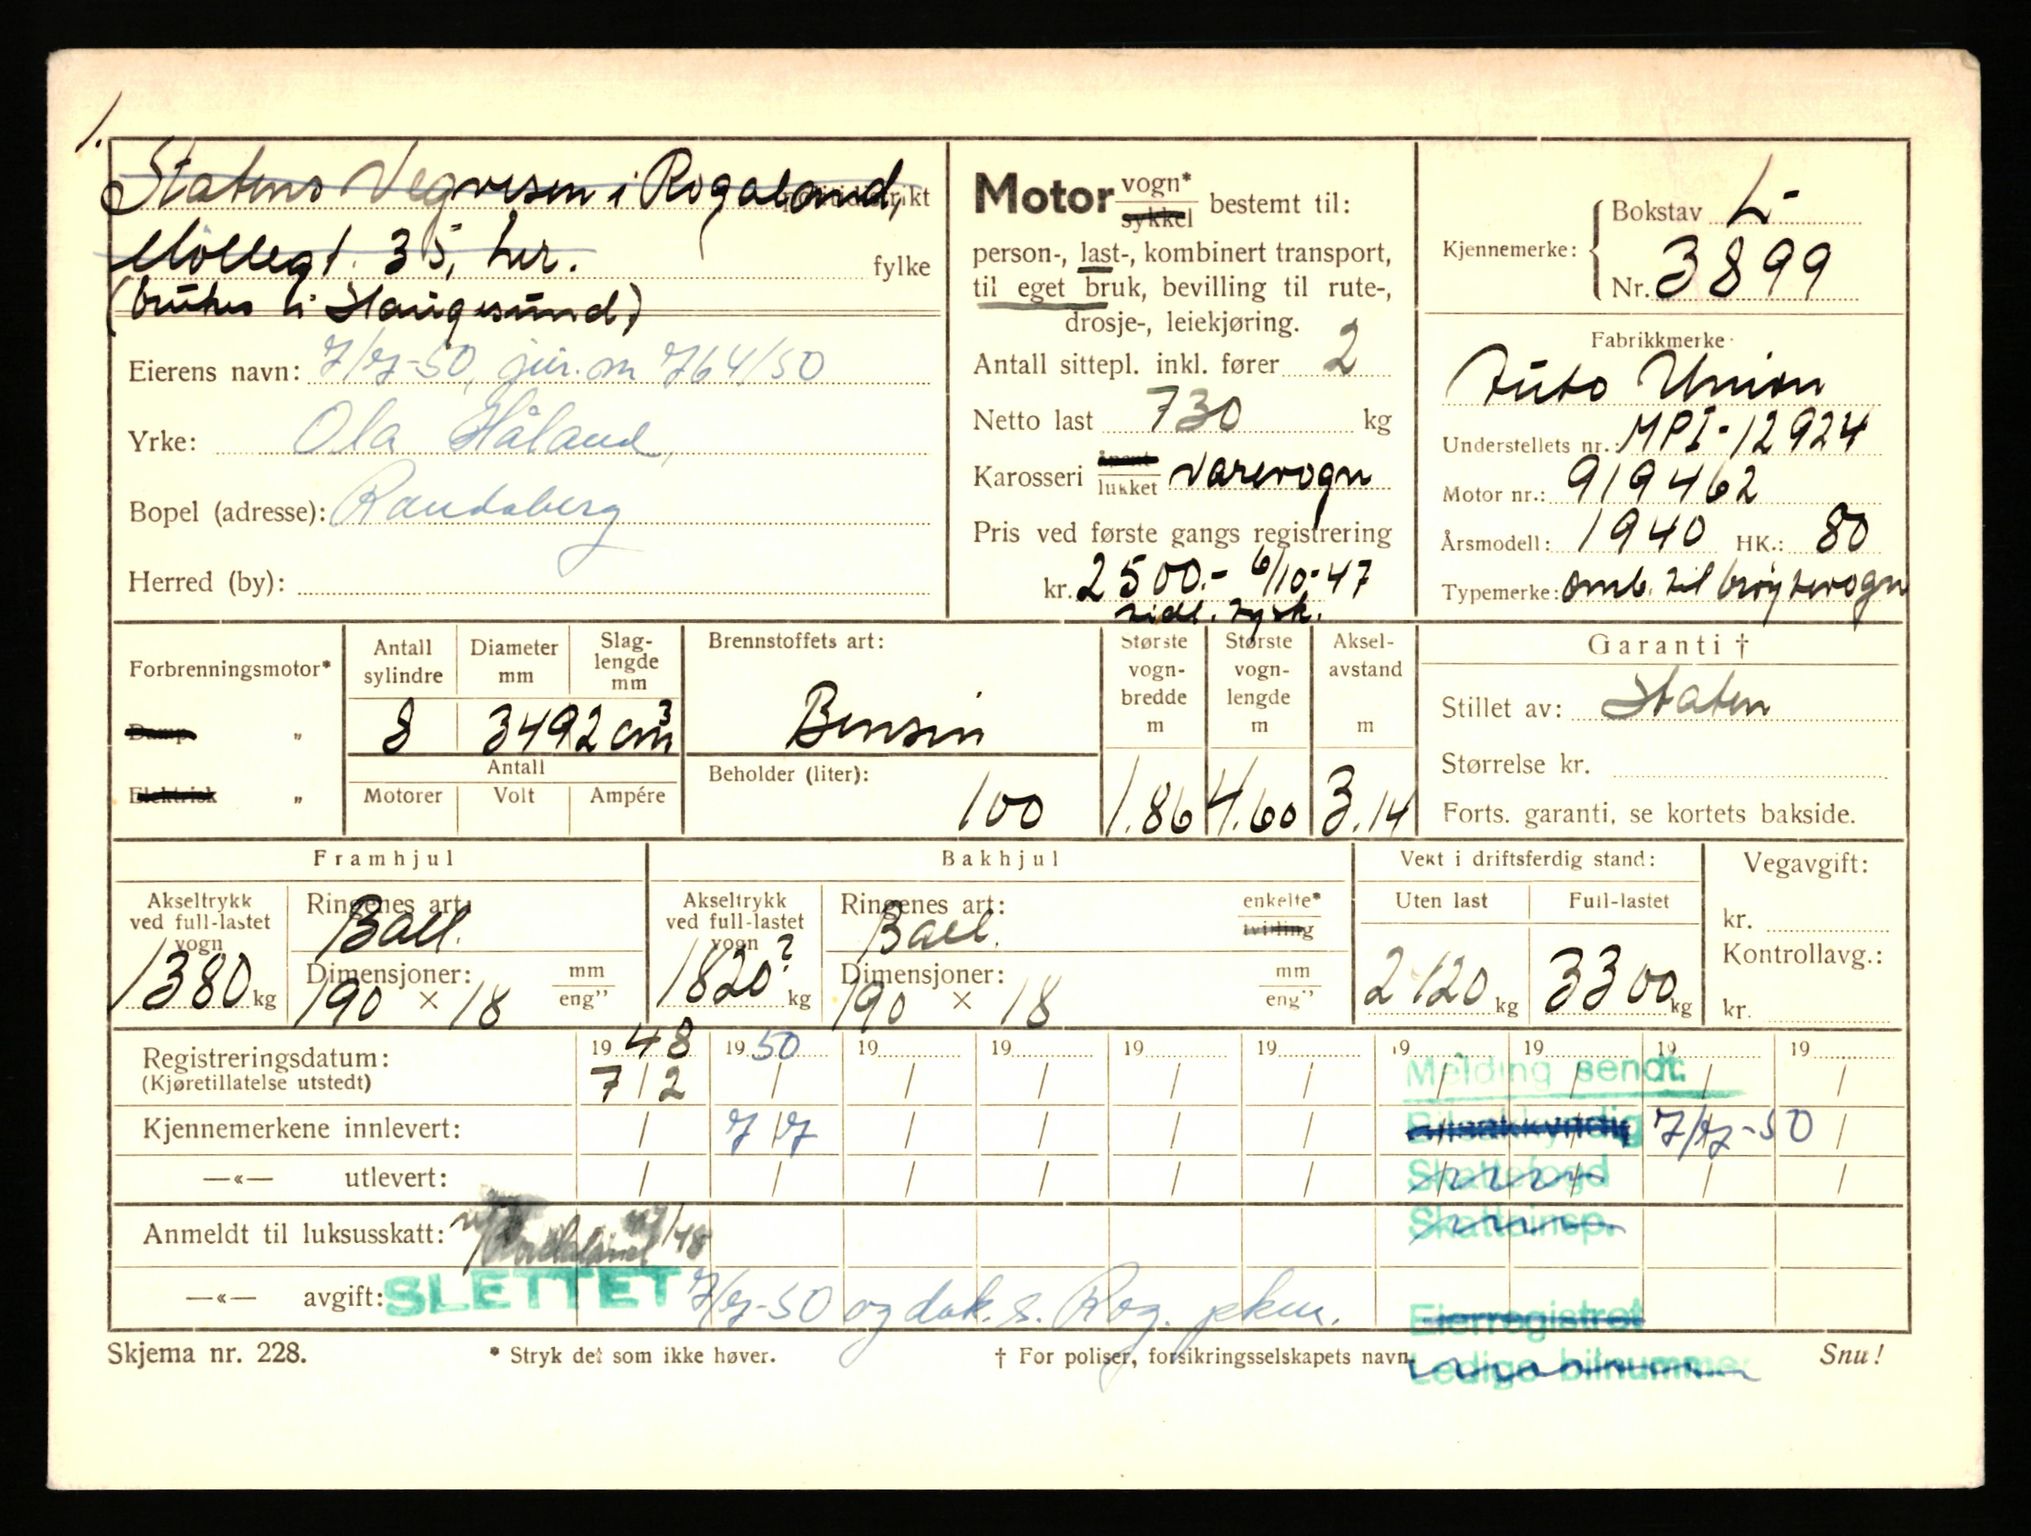 1.
Statens Vegvesen i Rogaland,
Møllegt. 35, her. fylke
(brukes i Haugesund)
Eierens navn: 7/7-50, jur. nr 764/50
Yrke: Ola Håland,
Bopel (adresse): Randaberg
Herred (by):
Motor vogn* sykkel bestemt til:
person-, last-, kombinert transport,
til eget bruk, bevilling til rute-,
drosje-, leiekjøring.
Antall sittepl. inkl. fører 2
Netto last 730 kg
Karosseri åpent lukket Varevogn
Pris ved første gangs registrering
kr. 2500.- 6/10-47
tidl. tysk.
Kjennemerke: Bokstav L-
Nr. 3899
Fabrikkmerke
Auto Union
Understellets nr.: MPI-12924
Motor nr.: 919462
Årsmodell: 1940 HK.: 80
Typemerke: omb. til brøytevogn
Forbrenningsmotor*
Damp "
Elektrisk "
Antall sylindre Diameter mm Slag-lengde mm
8 3492 cm³
Antall
Motorer Volt Ampére
Brennstoffets art:
Bensin
Beholder (liter):
100
Største vogn-bredde m Største vogn-lengde m Aksel-avstand m
1.86 4.60 3.14
Garanti †
Stillet av: Staten
Størrelse kr.
Forts. garanti, se kortets bakside.
Framhjul
Akseltrykk ved full-lastet vogn
1380 kg
Ringenes art:
Ball.
Dimensjoner: mm
190 × 18 eng"
Bakhjul
Akseltrykk ved full-lastet vogn
1820? kg
Ringenes art: enkelte* tvilling
Ball.
Dimensjoner: mm
190 × 18 eng"
Vekt i driftsferdig stand:
Uten last Full-lastet
2120 kg 3300 kg
Vegavgift:
kr.
Kontrollavg.:
kr.
Registreringsdatum: 1948 1950 19 19 19 19 19 19 19 19
(Kjøretillatelse utstedt) 7/2 / / / / / / / / /
Melding sendt:
Kjennemerkene innlevert: / 7/7 / / / / / / / /
Bilsakkyndig 7/7-50
—«— utlevert: / / / / / / / / / /
Skattefogd
Anmeldt til luksusskatt:
Skatteinsp.
—«— avgift: SLETTET 7/7-50 og dok. s. Rog. pkm.
Eierregistret
Skjema nr. 228. * Stryk det som ikke høver. † For poliser, forsikringsselskapets navn. Snu!
Ledige bilnummer